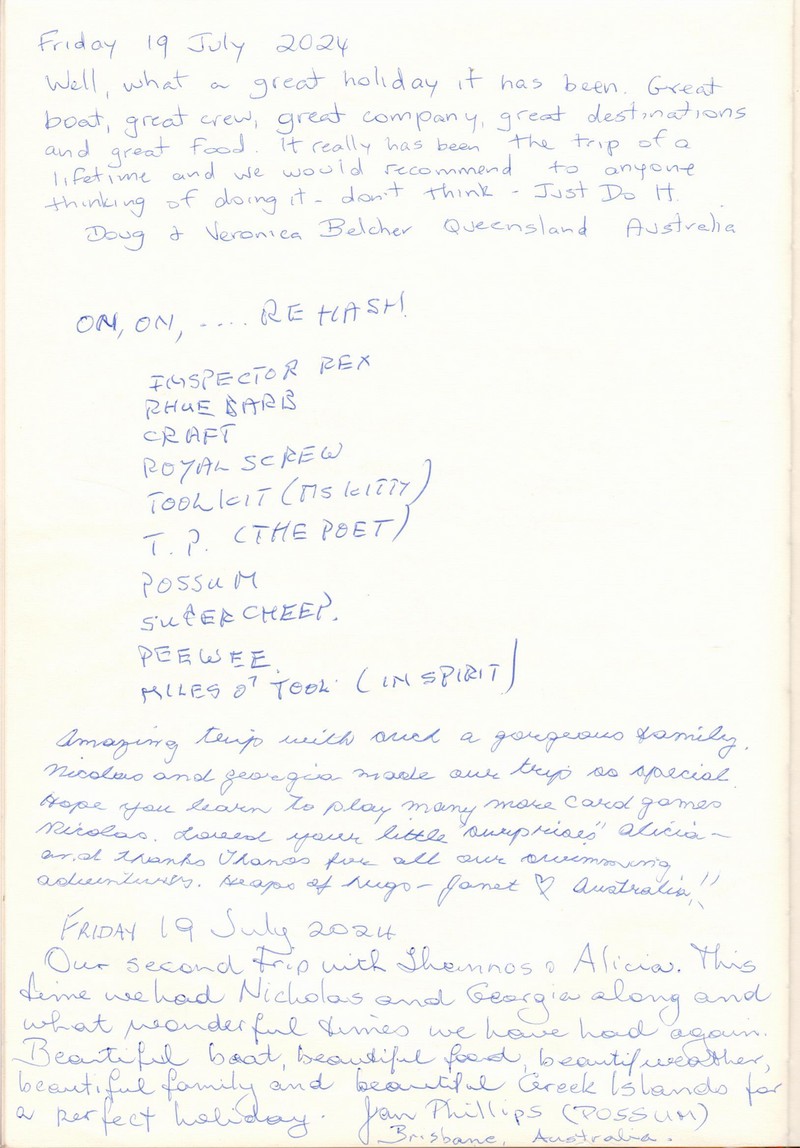 Friday 19 July 2024
Well, what a great holiday it has been. Great
boat, great crew, great company, great destinations
and great food. It really has been the trip of a
lifetime and we would recommend to anyone
thinking of doing it - don't think - Just Do It.
Doug & Veronica Belcher Queensland Australia
ON, ON, .... RE HASH!
INSPECTOR REX
RHUEBARB
CRAFT
ROYAL SCREW
TOOLKIT (MS KITTY)
T. P. (THE POET)
POSSUM
SUPER CHEEP.
PEEWEE.
MILES O' TOOL (IN SPIRIT)
Amazing trip with such a gorgeous family.
Nicolas and Georgia made our trip so special.
Hope you learn to play many more card games
Nicolas. Loved your little "surprises" Alicia -
and thanks Thanos for all our swimming
adventures. Heaps of hugs - Janet ♡ Australia!!
FRIDAY 19 July 2024
Our second trip with Thannos & Alicia. This
time we had Nicholas and Georgia along and
what wonderful times we have had again.
Beautiful boat, beautiful food, beautifweather,
beautiful family and beautiful Greek Islands for
a perfect holiday. Jan Phillips (POSSUM)
Brisbane, Australia.